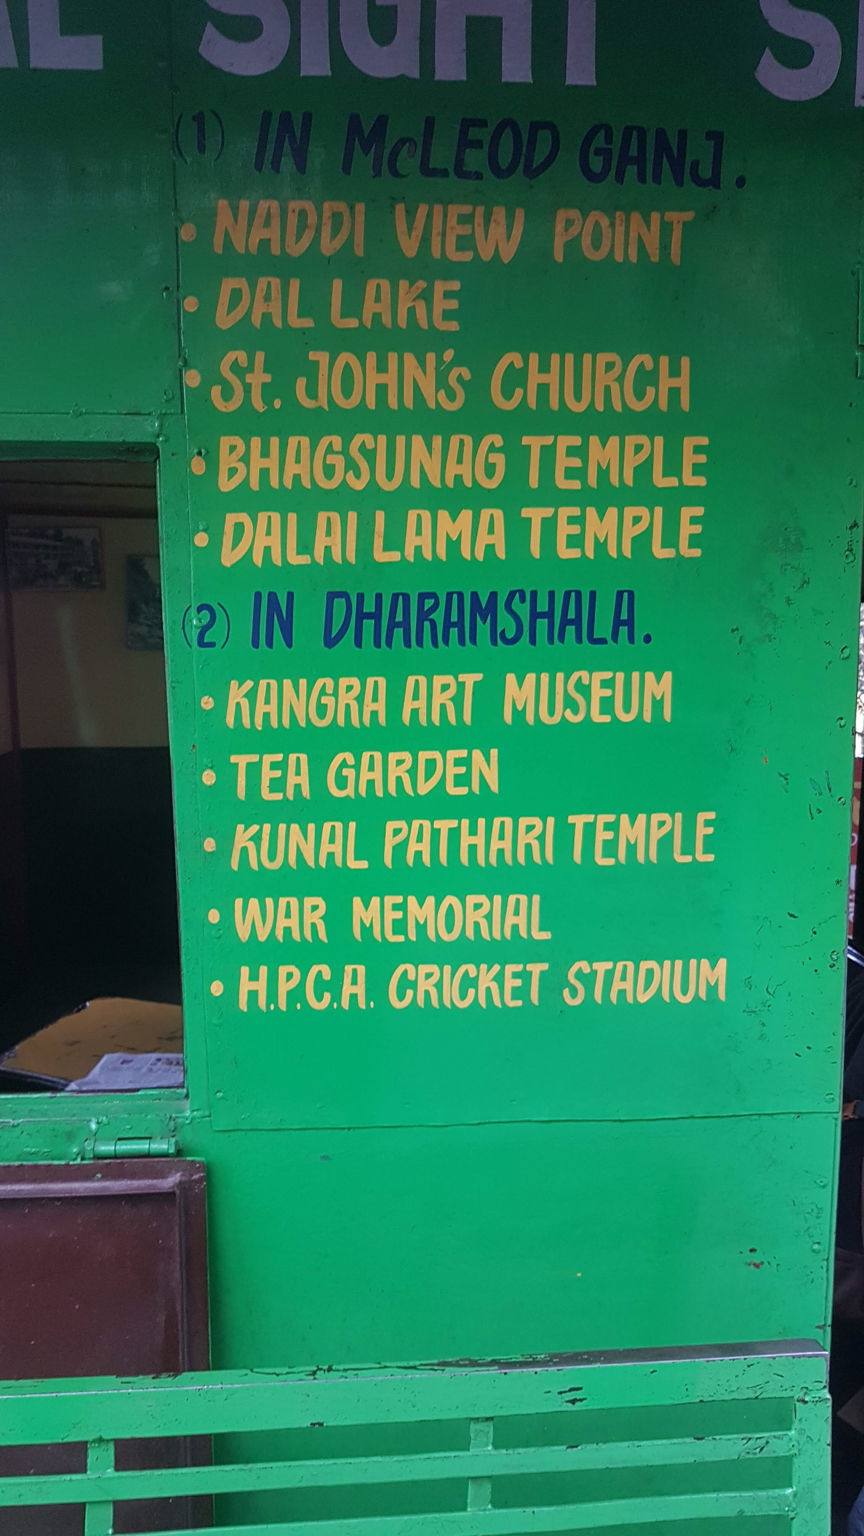 SIGHT
(1) IN McLEOD GANJ.
• NADDI VIEW POINT
• DAL LAKE
• St. JOHN's CHURCH
• BHAGSUNAG TEMPLE
• DALAI LAMA TEMPLE
(2) IN DHARAMSHALA.
• KANGRA ART MUSEUM
• TEA GARDEN
• KUNAL PATHARI TEMPLE
• WAR MEMORIAL
• H.P.C.A. CRICKET STADIUM